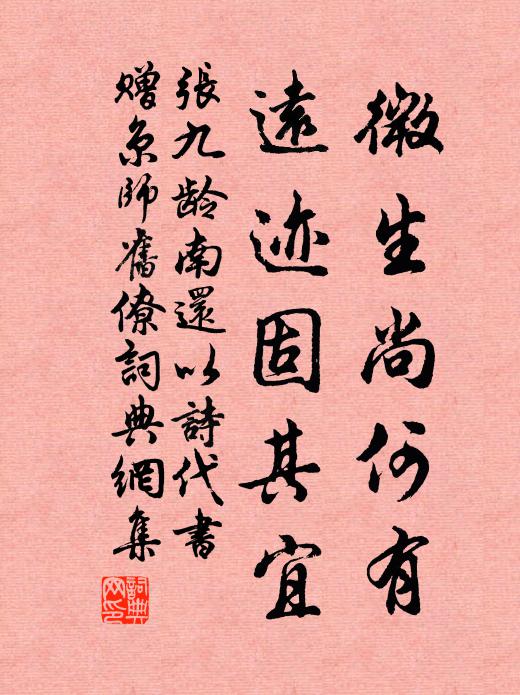 微生尚何有
遠迹固其宜
張九龄南還以詩代書
赠京師舊僚詞典網集
詞典
网印